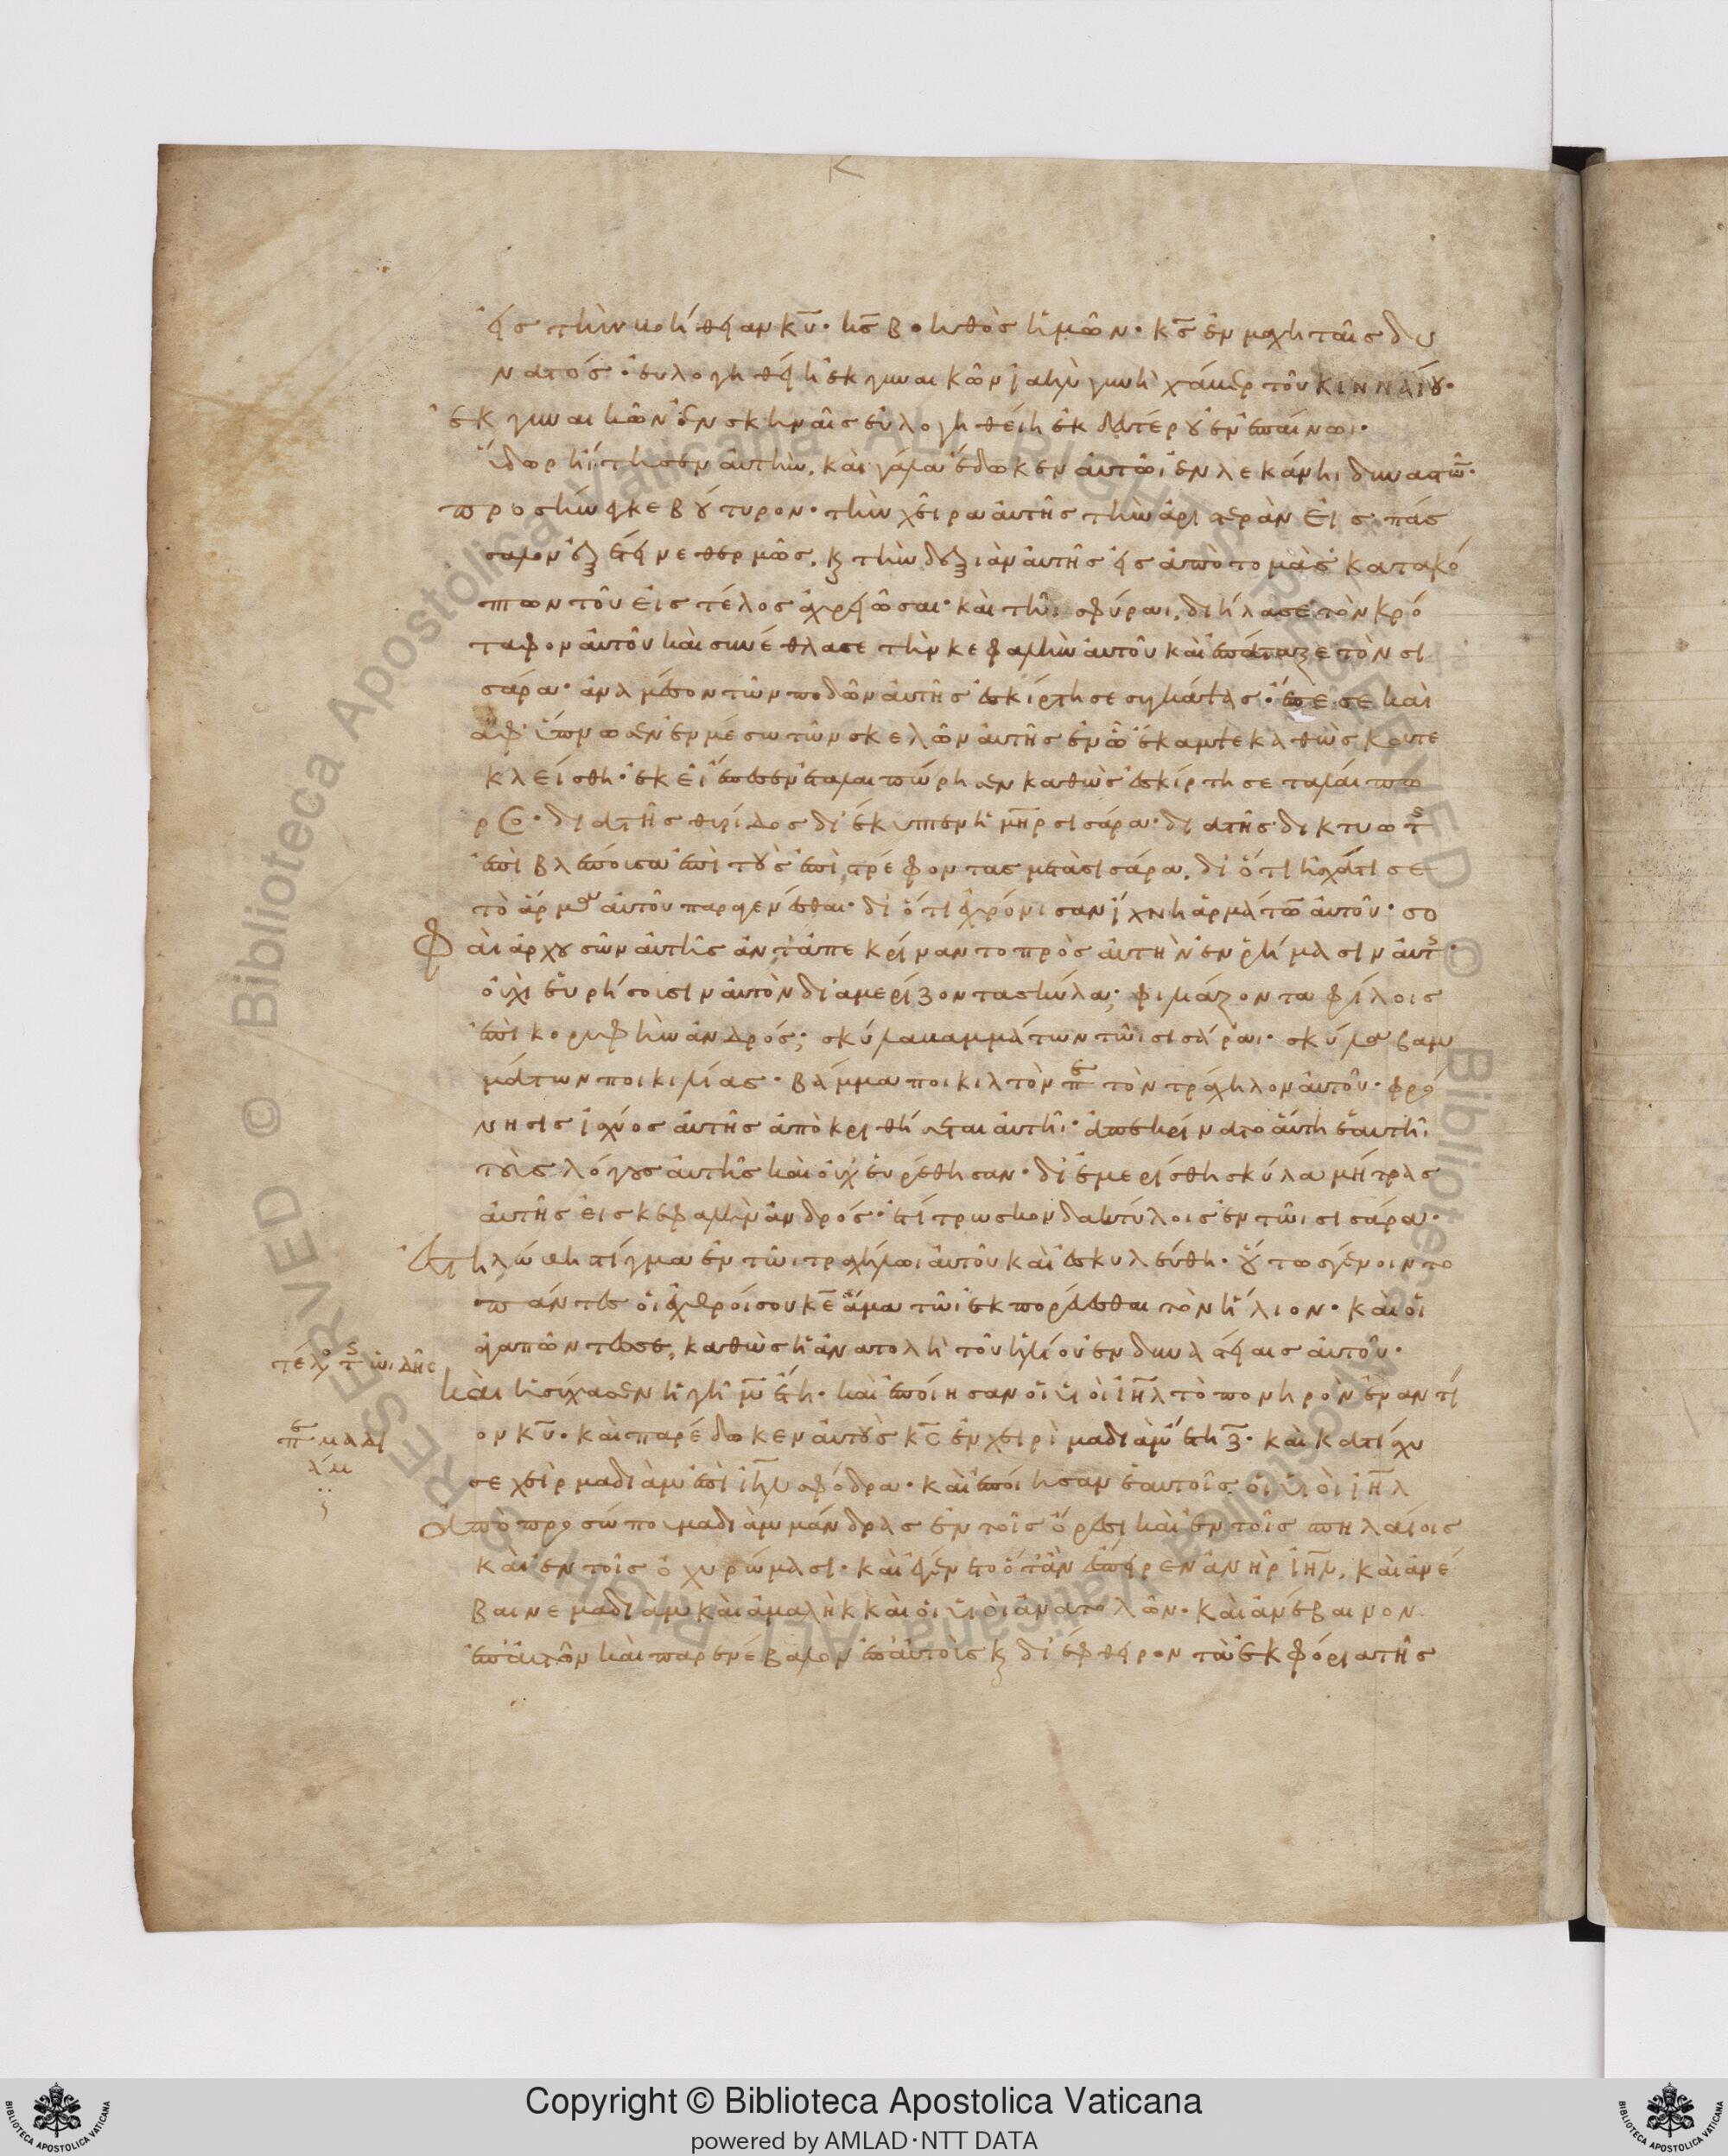 εἰς τὴν βοήθειαν κ̅υ̅· κ̅ς̅ βοηθὸς ἡμῶν· κ̅ς̅ ἐν μαχηταῖς δυ
νατός· εὐλογηθείη ἐκ γυναικῶν ἰαὴλ γυνὴ χάβερ τοῦ κινναίου·
ἐκ γυναικῶν ἐν σκηναῖς εὐλογηθείη ἐκ
ὕδωρ ἤιτησεν αὐτὴν, καὶ γάλα ἔδωκεν αὐτῶι ἐν λεκάνηι δυναστῶ̅·
προσήνεγκε βούτυρον· τὴν χεῖρα αὐτῆς τὴν ἀριστερὰν εἰς πάς
σαλον ἐξέτεινε
τὴν δεξιὰν αὐτῆς εἰς ἀποτομὰς κατακό
πων τοῦ εἰς τέλος ἀχρειῶσαι· καὶ τῆι σφύραι, διήλασε τὸν κρό
ταφον αὐτοῦ καὶ συνέθλασε τὴν κεφαλὴν αὐτοῦ καὶ ἐπάταξε τὸν σι
σάρα· ἀνὰ μέσον τῶν ποδῶν αὐτῆς ἐσκίρτησε συγκάψας· ἔπεσε καὶ
ἀφύπνωσεν ἐν μέσω τῶν σκελῶν αὐτῆς ἐν ὧ ἔκαμψε καθὼς κατε
κλείσθη· ἐκεῖ ἔπεσεν ἐταλαιπώρησεν καθὼς ἐσκίρτησε ταλαιπω
ρῶ· διὰ τῆς θυρίδος διέκυπτεν ἡ μ̅η̅ρ σισάρα· διὰ τῆς δικτυωτῆς
ἐπιβλέπουσα ἐπὶ τοὺς ἐπιστρέφοντας μετὰ σισάρα, διότι ἠσχάτισε
τὸ ἅρμα αὐτοῦ παραγενέσθαι· διότι ἐχρόνισαν ἴχνη ἁρμάτω̅ αὐτοῦ· σο
φαὶ ἀρχουσῶν αὐτῆς ἀνταπεκρίναντο πρὸς αὐτὴν ἐν ῥήμασιν αὐτῆς·
οὐχὶ εὑρήσουσιν αὐτὸν διαμερίζοντα σκῦλα; φιλιάζοντα φίλοις
ἐπὶ κορυφὴν ἀνδρός; σκῦλα βαμμάτων τῶι σισάραι· σκῦλα βαμ
μάτων ποικιλίας· βάμμα ποικιλτὸν π̅ε̅ τὸν τράχηλον αὐτοῦ· φρό
νησις ἰσχύος αὐτῆς ἀποκριθήσεται αὐτῆι· ἀπεκρίνατο αὐτὴ ἑαυτῆι
τοὺς λόγους αὐτῆς καὶ οὐχ εὑρέθησαν· διεμερίσθη σκῦλα μήτρας
αὐτῆς εἰς κεφαλὴν ἀνδρός· ἐτίτρωσκον δακτύλοις ἐν τῶι σισάρα·
ἐστηλώθη στίγμα ἐν τῶι τραχήλωι αὐτοῦ καὶ ἐσκυλεύθη· οὕτως γένοιντο
πάντες οἱ ἐχθροί σου κ̅ε̅ ἅμα τῶι ἐκπορεύεσθαι τὸν ἥλιον· καὶ οἱ
ἀγαπῶντές σε, καθὼς ἡ ἀνατολὴ τοῦ ἡλίου ἐν δυναστείαις αὐτοῦ·
τέλο τῆς ὠιδῆς
καὶ ἡσύχασεν ἡ γῆ μ̅ ἔτη· καὶ ἐποίησαν οἱ υἱοὶ ι̅η̅λ̅ τὸ πονηρὸν ἐναντί
ον κ̅υ̅· καὶ παρέδωκεν αὐτοὺς κ̅ς̅ ἐν χειρὶ μαδιὰμ ἔτη ζ̅· καὶ κατίσχυ
π̅ε̅ μαδι
άμ
σε χεὶρ μαδιὰμ ἐπὶ ι̅η̅λ̅ σφόδρα· καὶ ἐποίησαν ἑαυτοῖς οἱ υἱοὶ ι̅η̅λ̅
ἀπὸ προσώπου μαδιὰμ μάνδρας ἐν τοῖς ὄρεσι καὶ ἐν τοῖς σπηλαίοις
καὶ ἐν τοῖς ὀχυρώμασι· καὶ ἐγένετο ὅταν ἔσπειρεν ἀνὴρ ι̅η̅λ̅, καὶ ἀνέ
βαινε μαδιὰμ καὶ ἀμαλὴκ καὶ οἱ υἱοὶ ἀνατολῶν· καὶ ἀνέβαινον
ἐπ᾽ αὐτὸν καὶ παρενέβαλον ἐπ᾽ αὐτοῖς κ̣ διέφθειρον τὰ ἐκφόρια τῆς
Copyright © Biblioteca Apostolica Vaticana
powered by AMLAD·NTT DATA